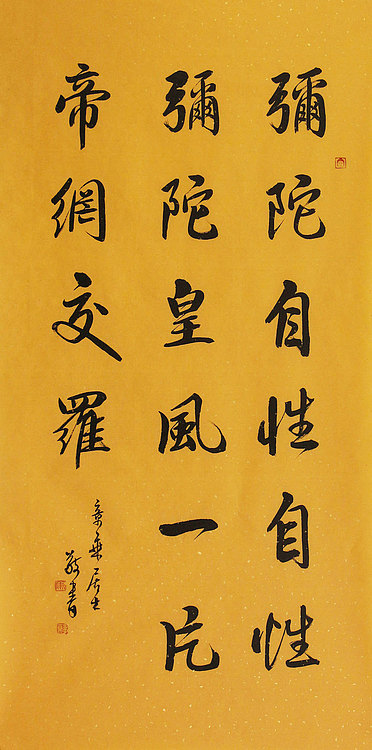 彌陀自性自性
彌陀皇風一片
帝網交羅
居士
敬書